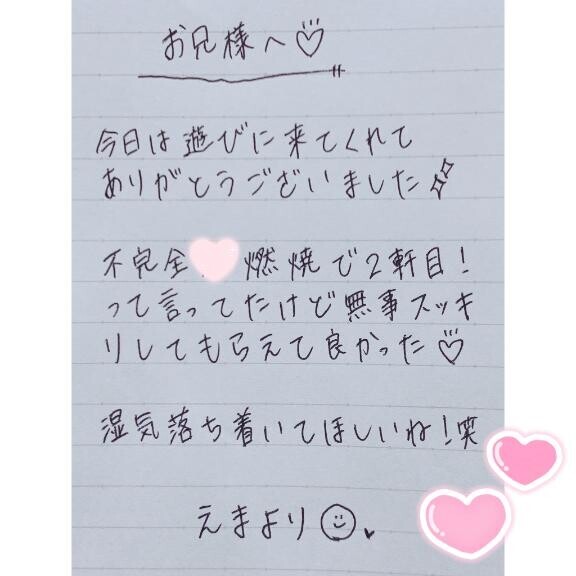 お兄様へ♡
今日は遊びに来てくれて
ありがとうございました
不完全燃焼で2軒目!
って言ってたけど無事スッキ
リしてもらえて良かった♡
湿気落ち着いてほしいね!笑
えまより